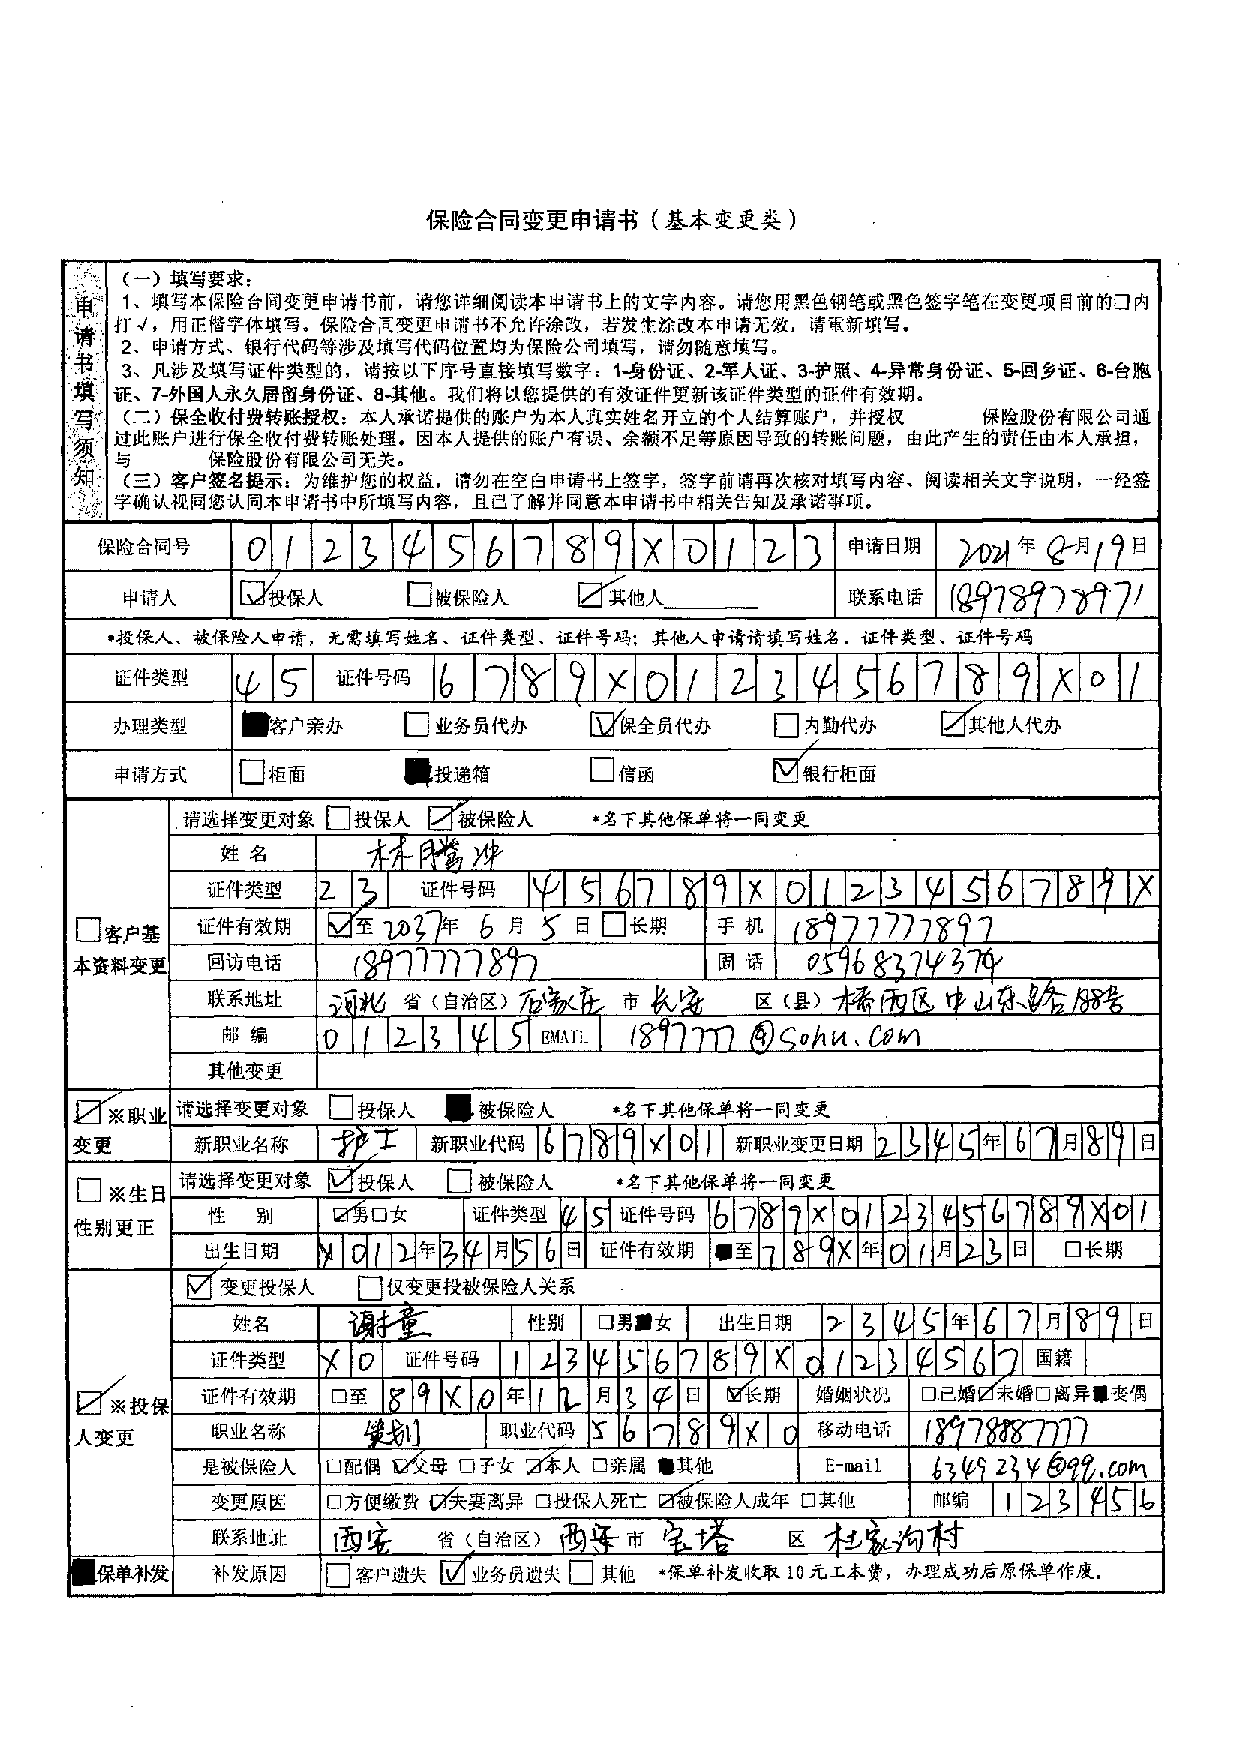 保险合同变更申请书（基本变更类）
申请书填写须知
（一）填写要求：
1、填写本保险合同变更申请书前，请您详细阅读本申请书上的文字内容。请您用黑色钢笔或黑色签字笔在变更项目前的□内
打√，用正楷字体填写。保险合同变更申请书不允许涂改，若发生涂改本申请无效，请重新填写。
2、申请方式、银行代码等涉及填写代码位置均为保险公司填写，请勿随意填写。
3、凡涉及填写证件类型的，请按以下序号直接填写数字：1-身份证、2-军人证、3-护照、4-异常身份证、5-回乡证、6-台胞
证、7-外国人永久居留身份证、8-其他。我们将以您提供的有效证件更新该证件类型的证件有效期。
（二）保全收付费转账授权：本人承诺提供的账户为本人真实姓名开立的个人结算账户，并授权 保险股份有限公司通
过此账户进行保全收付费转账处理。因本人提供的账户有误、余额不足等原因导致的转账问题，由此产生的责任由本人承担，
与 保险股份有限公司无关。
（三）客户签名提示：为维护您的权益，请勿在空白申请书上签字，签字前请再次核对填写内容、阅读相关文字说明，一经签
字确认视同您认同本申请书中所填写内容，且已了解并同意本申请书中相关告知及承诺事项。
保险合同号 0123456789X0123 申请日期 2021年8月19日
申请人 ☑投保人 □被保险人 ☑其他人 联系电话 18978978971
*投保人、被保险人申请，无需填写姓名、证件类型、证件号码；其他人申请请填写姓名、证件类型、证件号码
证件类型 45 证件号码 6789X0123456789X01
办理类型 ■客户亲办 □业务员代办 ☑保全员代办 □内勤代办 ☑其他人代办
申请方式 □柜面 ■投递箱 □信函 ☑银行柜面
□客户基本资料变更
请选择变更对象 □投保人 ☑被保险人 *名下其他保单将一同变更
姓名 林腾冲
证件类型 23 证件号码 456789X0123456789X
证件有效期 ☑至2037年6月5日 □长期 手机 18977777897
回访电话 18977777897 固话 05968374374
联系地址 河北 省（自治区）石家庄 市 长安 区（县）桥西区中山东路188号
邮编 012345 EMAIL 1897777@sohu.com
其他变更
☑※职业变更
请选择变更对象 □投保人 ■被保险人 *名下其他保单将一同变更
新职业名称 护士 新职业代码 6789X01 新职业变更日期 2345年67月89日
□※生日性别更正
请选择变更对象 ☑投保人 □被保险人 *名下其他保单将一同变更
性别 ☑男□女 证件类型 45 证件号码 6789X0123456789X01
出生日期 X012年34月56日 证件有效期 ■至789X年01月23日 □长期
☑※投保人变更
☑变更投保人 □仅变更投被保险人关系
姓名 谢童 性别 □男■女 出生日期 2345年67月89日
证件类型 X0 证件号码 123456789X01234567 国籍
证件有效期 □至89X0年12月34日 ☑长期 婚姻状况 □已婚☑未婚□离异■丧偶
职业名称 策划 职业代码 56789X0 移动电话 18978887777
是被保险人 □配偶 ☑父母 □子女 ☑本人 □亲属 ■其他 E-mail 6349234@qq.com
变更原因 □方便缴费 ☑夫妻离异 □投保人死亡 ☑被保险人成年 □其他 邮编 123456
联系地址 西安 省（自治区） 西安 市 宝塔 区 杜家沟村
■保单补发 补发原因 □客户遗失 ☑业务员遗失 □其他 *保单补发收取10元工本费，办理成功后原保单作废。